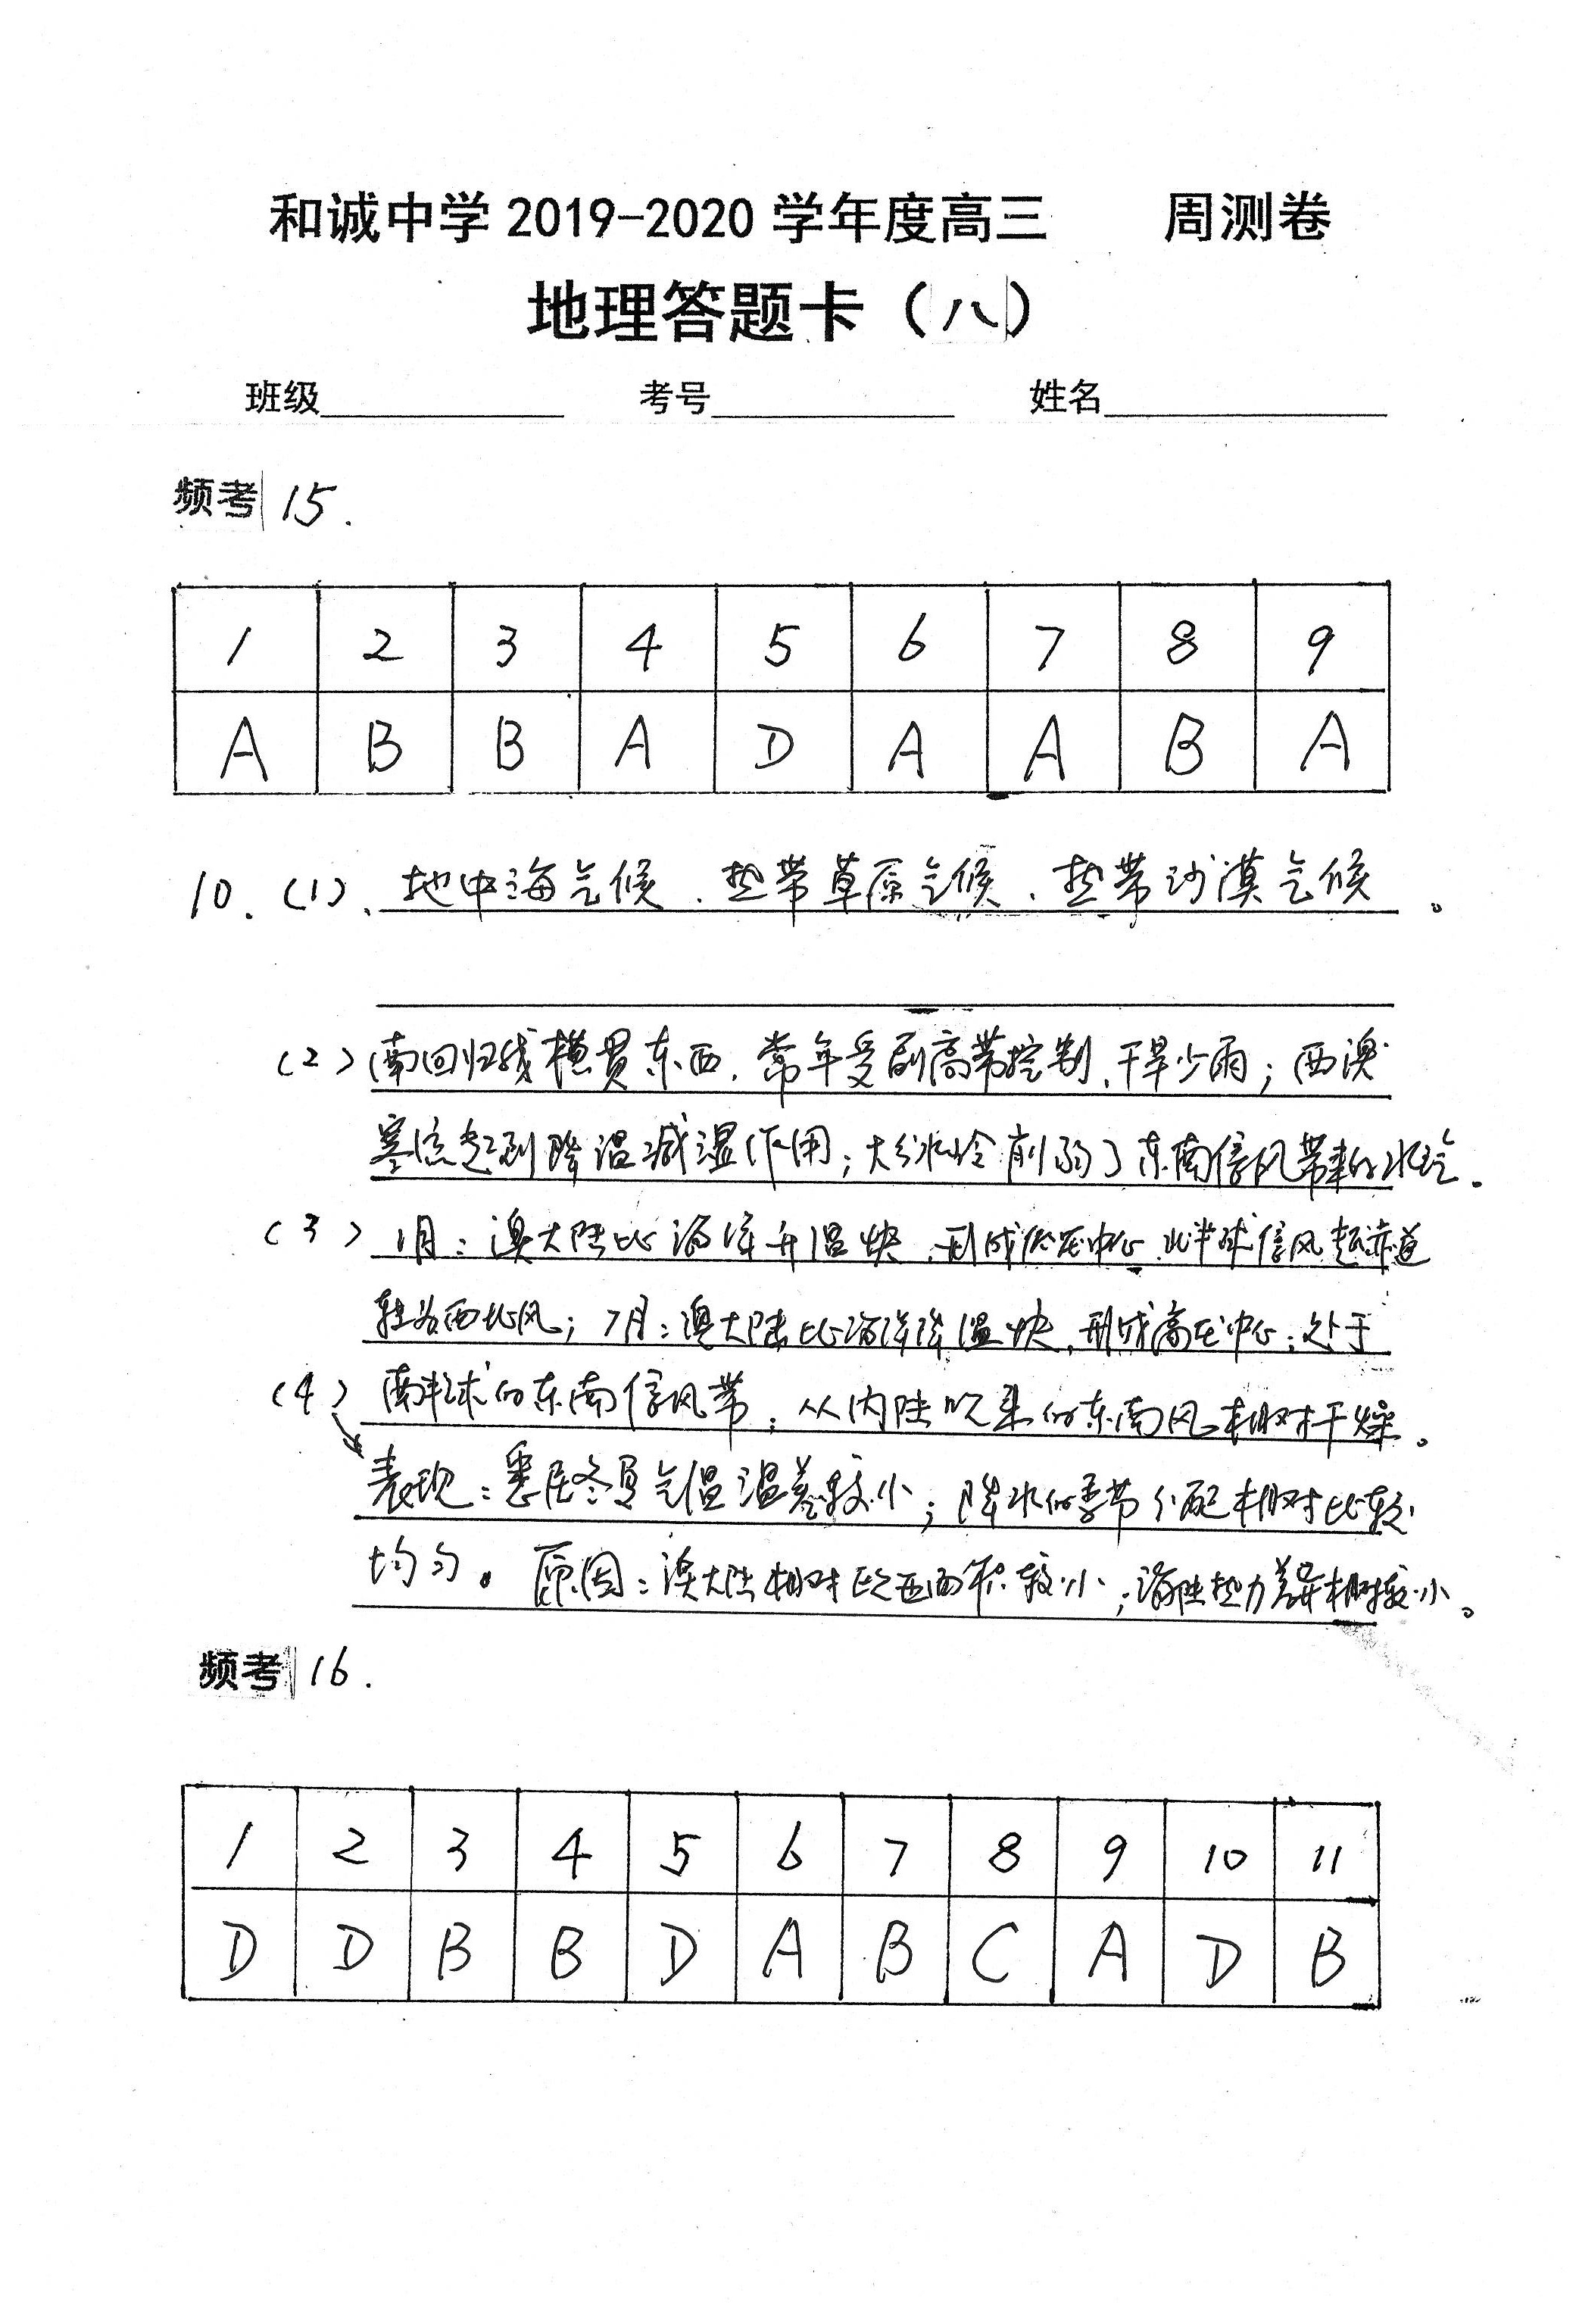 和诚中学 2019-2020 学年度高三 周测卷
地理答题卡（八）
班级 考号 姓名
频考 15.
1 2 3 4 5 6 7 8 9
A B B A D A A B A
10. (1)、地中海气候、热带草原气候、热带沙漠气候。
(2) 南回归线横贯东西，常年受副高带控制，干旱少雨；西澳
寒流起到降温减湿作用；大分水岭削弱了东南信风带来的水汽。
(3) 1月：澳大陆比海洋升温快，形成低压中心，北半球信风越赤道
转为西北风；7月：澳大陆比海洋降温快，形成高压中心；处于
(4) 南半球的东南信风带，从内陆吹来的东南风相对干燥。
表现：悉尼冬夏气温温差较小；降水的季节分配相对比较
均匀。原因：澳大陆相对比亚面积较小；海陆热力差异相对较小。
频考 16.
1 2 3 4 5 6 7 8 9 10 11
D D B B D A B C A D B